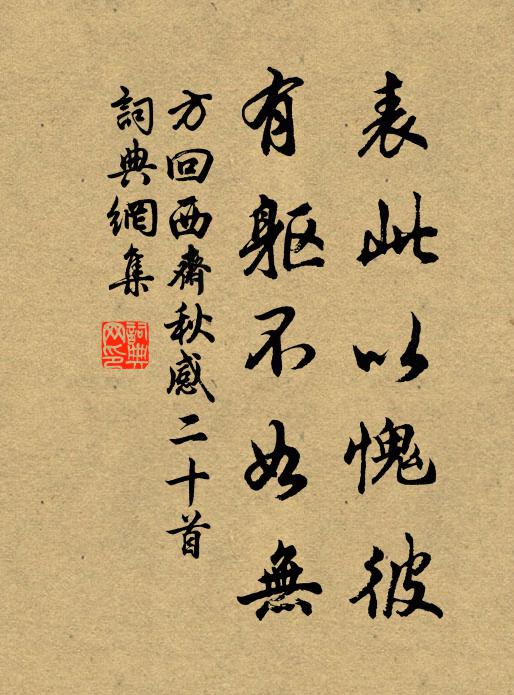 表此以愧彼
有軀不如無
方回西齋秋感二十首
詞典網集
詞典網印